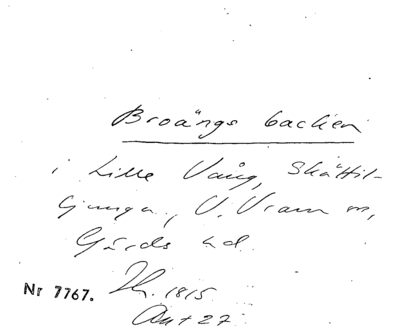 Broängs backen
i Lille Vång, Skättil-
ljunga, V. Vram sn,
Gärds hd.
Nr 7767. Jh. 1815
Akt 27